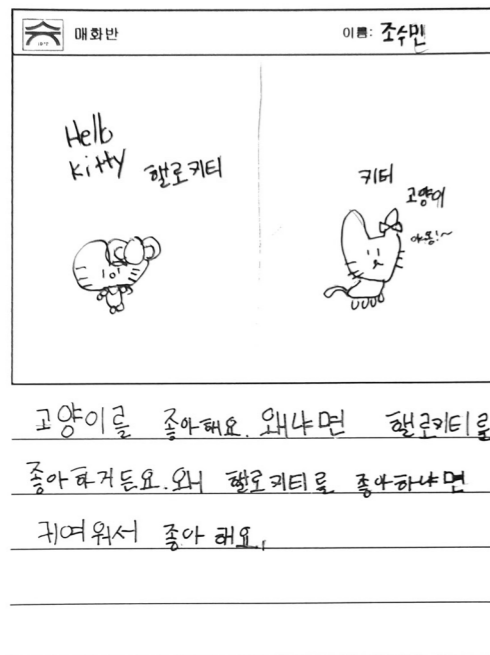 매화반
이름: 조수민
Hello
Kitty 핼로키티
키티
고양이
야옹!~
고양이를 좋아해요. 왜냐면 핼로키티를
좋아하거든요. 왜 핼로키티를 좋아하냐면
귀여워서 좋아해요.